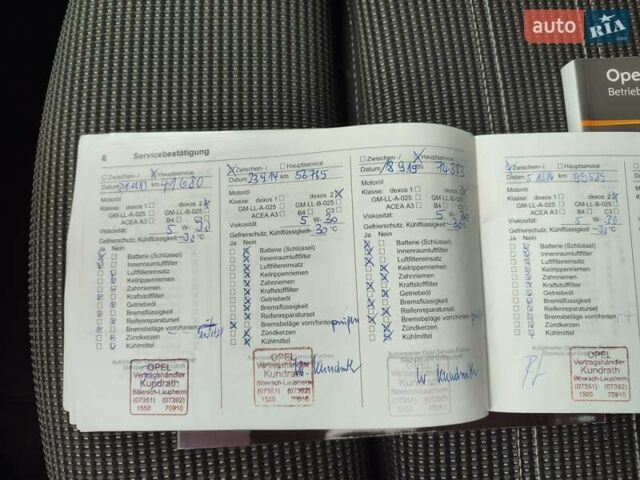 auto RIA
Opel
Betrieb
6 Servicebestätigung
Zwischen- / X Hauptservice
Datum km 41680
Motoröl
Klasse: dexos 1 dexos 2
GM-LL-A-025 GM-LL-B-025
ACEA A3 B4 C3
Viskosität 5 W- 30
Gefrierschutz, Kühlflüssigkeit -30 °C
Ja Nein
Batterie (Schlüssel)
Innenraumluftfilter
Luftfiltereinsatz
Keilrippenriemen
Zahnriemen
Kraftstofffilter
Getriebeöl
Bremsflüssigkeit
Reifenreparaturset
Bremsbeläge vorn/hinten
Zündkerzen
Kühlmittel
OPEL
Vertragshändler
Kundrath
Biberach-Laupheim
(07351) (07392)
1560 70910
X Zwischen- / Hauptservice
Datum 23.9.14 km 56765
Motoröl
Klasse: dexos 1 dexos 2 X
GM-LL-A-025 GM-LL-B-025
ACEA A3 B4 C3
Viskosität 5 W- 30
Gefrierschutz, Kühlflüssigkeit -30 °C
Ja Nein
Batterie (Schlüssel)
Innenraumluftfilter
Luftfiltereinsatz
Keilrippenriemen
Zahnriemen
Kraftstofffilter
Getriebeöl
Bremsflüssigkeit
Reifenreparaturset
Bremsbeläge vorn/hinten prüfen
Zündkerzen
Kühlmittel
OPEL
Vertragshändler
Kundrath
Biberach-Laupheim
(07351) (07392)
1560 70910
Zwischen- / X Hauptservice
Datum km
Motoröl
Klasse: dexos 1 dexos 2 X
GM-LL-A-025 GM-LL-B-025
ACEA A3 B4 C3
Viskosität 5 W- 30
Gefrierschutz, Kühlflüssigkeit -30 °C
Ja Nein
Batterie (Schlüssel)
Innenraumluftfilter
Luftfiltereinsatz
Keilrippenriemen
Zahnriemen
Kraftstofffilter
Getriebeöl
Bremsflüssigkeit
Reifenreparaturset
Bremsbeläge vorn/hinten prüfen
Zündkerzen
Kühlmittel
Autorisierter Opel Service Partner
OPEL
Vertragshändler
Kundrath
Biberach-Laupheim
(07351) (07392)
1560 70910
Zwischen- / Hauptservice
Datum km
Motoröl
Klasse: dexos 1
GM-LL-A-025
ACEA A3 B4
Viskosität 5 W- 30
Gefrierschutz, Kühlflüssigkeit
Ja Nein
Batterie (Schlüssel)
Innenraumluftfilter
Luftfiltereinsatz
Keilrippenriemen
Zahnriemen
Kraftstofffilter
Getriebeöl
Bremsflüssigkeit
Reifenreparaturset
Bremsbeläge vorn/hinten
Zündkerzen
Kühlmittel
OPEL
Vertragshändler
Kundrath
Biberach-Laupheim
(07351) (07392)
1560 70910